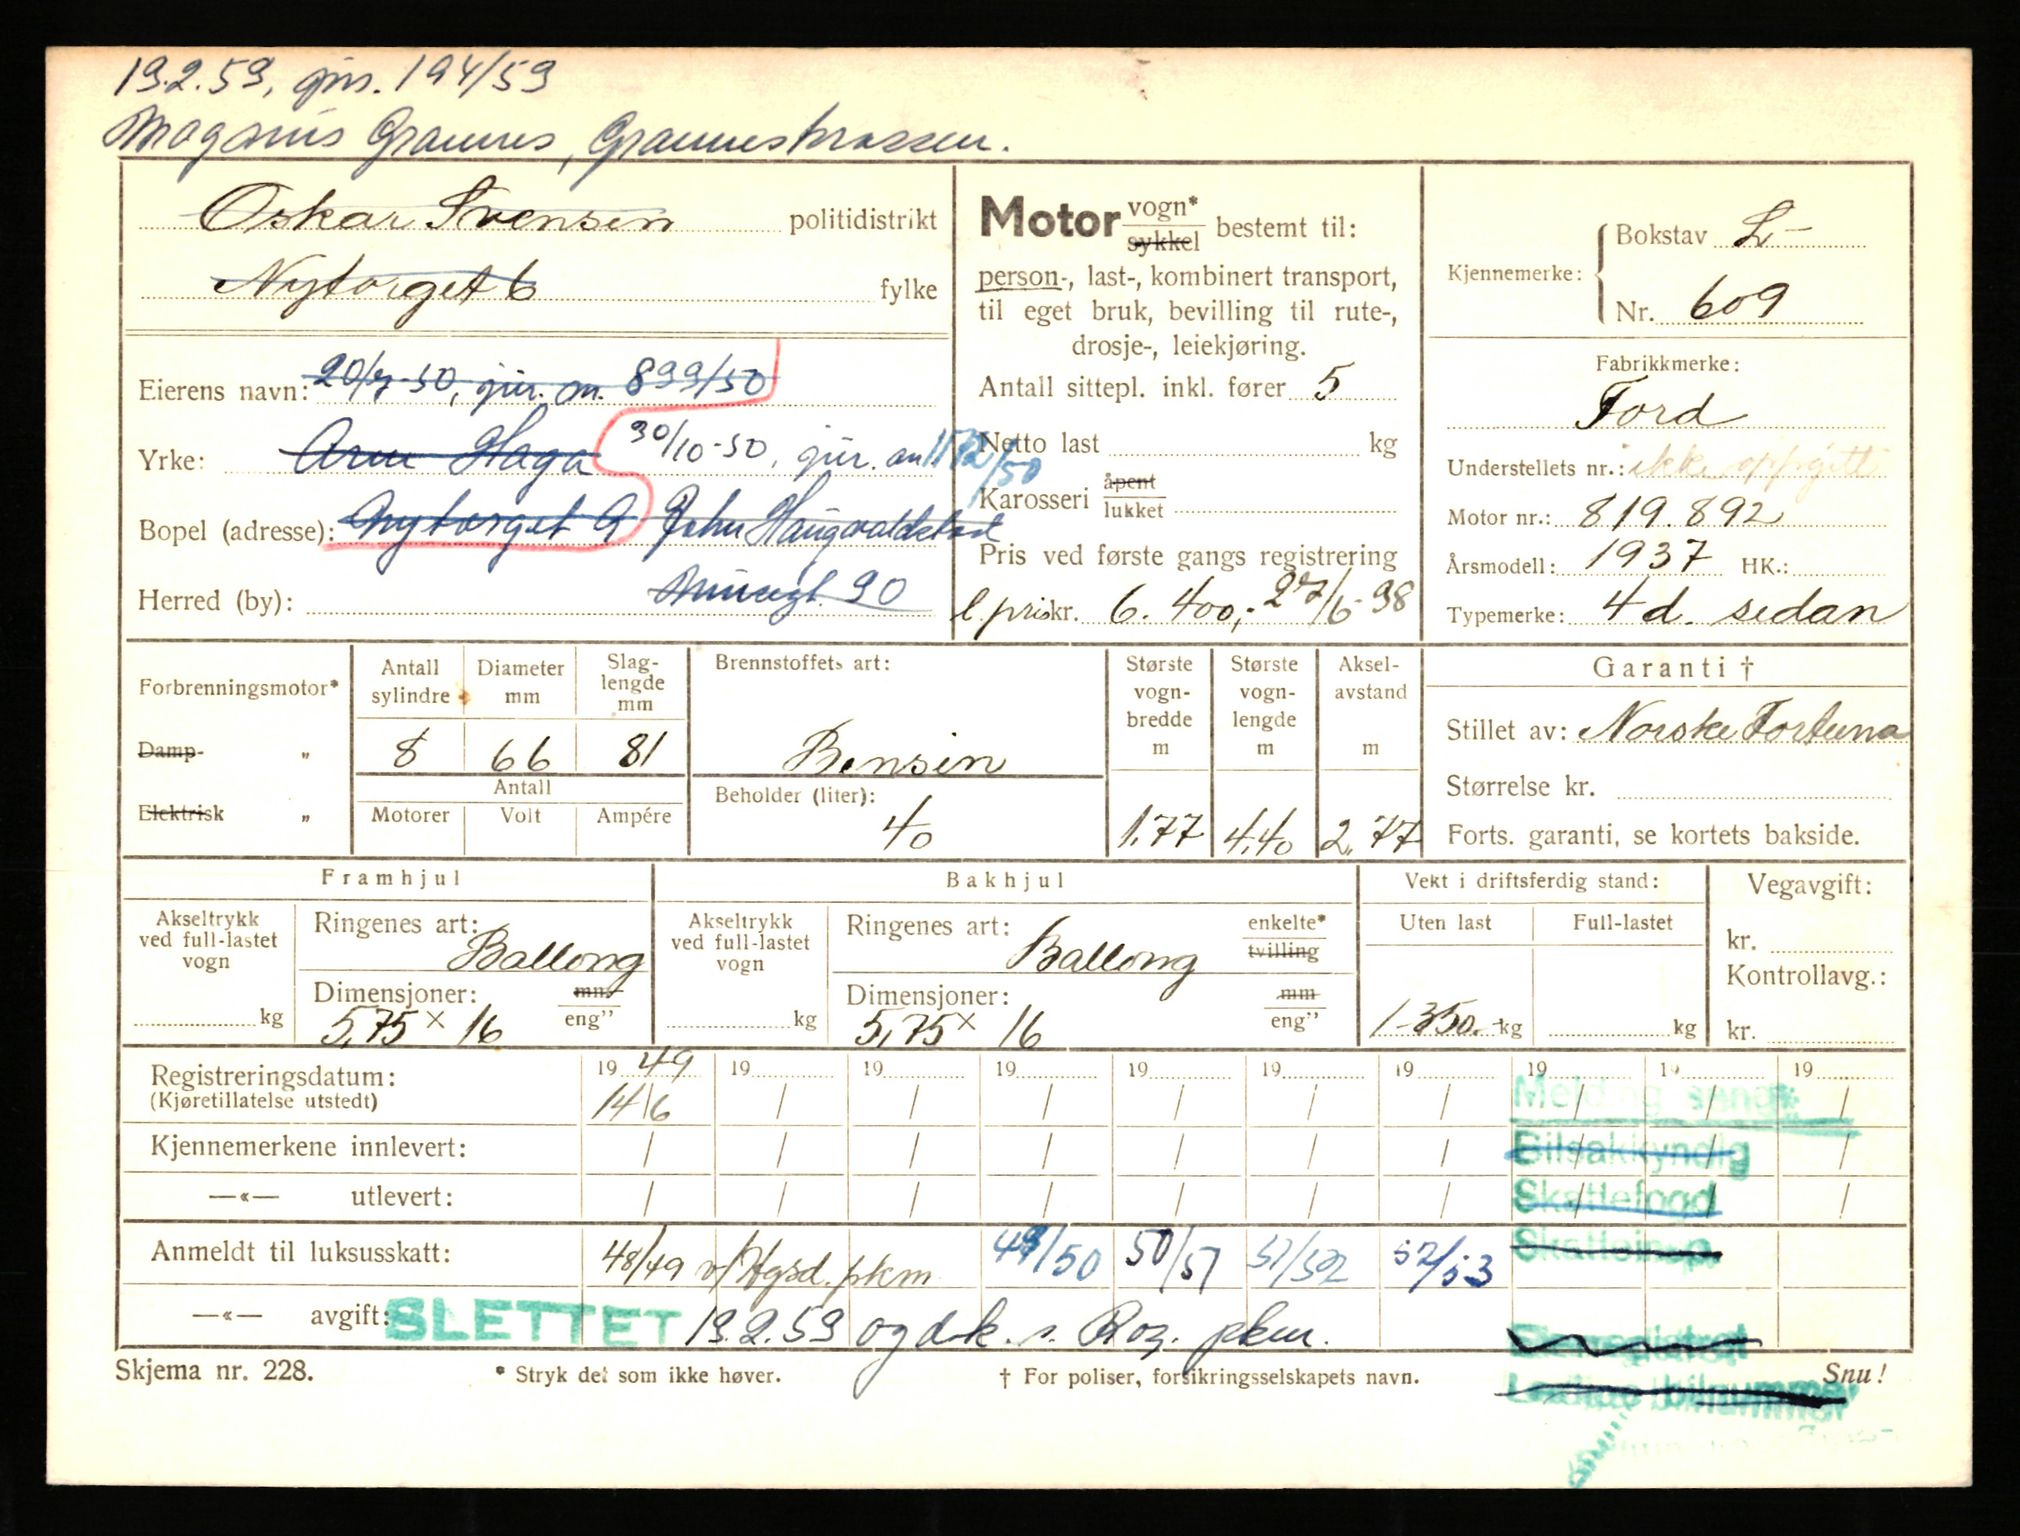 19.2.53, jnr. 194/53
Magnus Grannes, Grannestrassen.
Oskar Svensen politidistrikt
Nytorget 6 fylke
Eierens navn: 20/7-50, jnr. an. 899/50
Yrke: Arne Haga 30/10-50, jnr. an 1572/50
Bopel (adresse): Nytorget 9 John Haugvaldstad
Herred (by): Muségt. 90
Motor vogn* sykkel bestemt til:
person-, last-, kombinert transport,
til eget bruk, bevilling til rute-,
drosje-, leiekjøring.
Antall sittepl. inkl. fører 5
Netto last kg
Karosseri åpent lukket
Pris ved første gangs registrering
l. pris kr. 6.400,- 27/6-38
Kjennemerke: Bokstav L-
Nr. 609
Fabrikkmerke:
Ford
Understellets nr.: ikke oppgitt
Motor nr.: 819.892
Årsmodell: 1937 HK.:
Typemerke: 4 d. sedan
Forbrenningsmotor*
Damp- „
Elektrisk „
Antall sylindre
Diameter mm
Slag-lengde mm
8 66 81
Antall
Motorer Volt Ampére
Brennstoffets art:
Bensin
Beholder (liter):
40
Største vogn-bredde m
1,77
Største vogn-lengde m
4,40
Aksel-avstand m
2,77
Garanti †
Stillet av: Norske Fortuna
Størrelse kr.
Forts. garanti, se kortets bakside.
Framhjul
Akseltrykk ved full-lastet vogn
kg
Ringenes art:
Ballong
Dimensjoner: mm eng"
5,75 x 16
Bakhjul
Akseltrykk ved full-lastet vogn
kg
Ringenes art: enkelte* tvilling
Ballong
Dimensjoner: mm eng"
5,75 x 16
Vekt i driftsferdig stand:
Uten last Full-lastet
1350.- kg kg
Vegavgift:
kr.
Kontrollavg.:
kr.
Registreringsdatum: 19 49 19 19 19 19 19 19 19 19 19
(Kjøretillatelse utstedt) 14/6 / / / / / / / / /
Melding sendt:
Kjennemerkene innlevert: / / / / / / / / / /
Bilsakkyndig
—«— utlevert: / / / / / / / / / /
Skattefogd
Anmeldt til luksusskatt: 48/49 v/Hgsd. pkm 49/50 50/51 51/52 52/53
Skatteinsp.
—«— avgift: SLETTET 19.2.53 og d.k. s. Rog. pkm.
Skjema nr. 228. * Stryk det som ikke høver. † For poliser, forsikringsselskapets navn. Snu!